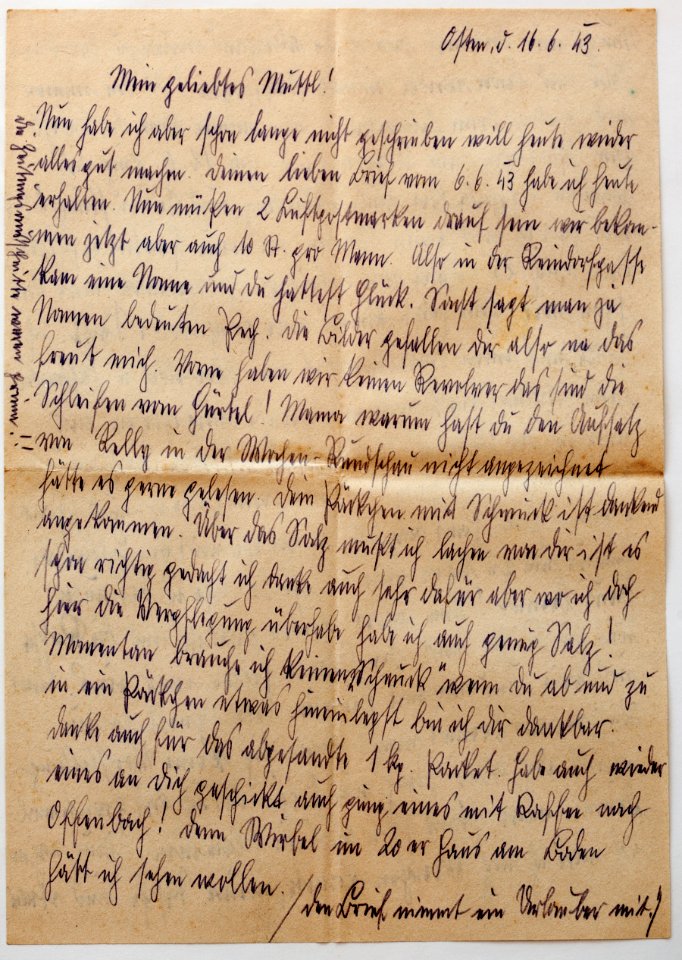 Osten, d. 16. 6. 43.
Mein geliebtes Muttl!
Nun habe ich aber schon lange nicht geschrieben will heute wieder
alles gut machen. Deinen lieben Brief vom 6. 6. 43 habe ich heute
erhalten. Nun müßen 2 Luftpostmarken drauf sein wir bekom-
men jetzt aber auch 10 St. pro Mann. Also in der Reindorfgasse
kam eine Nonne und du hattest Glück. Sonst sagt man ja
Nonnen bedeuten Pech. Die Bilder gefallen dir also na das
freut mich. Vorne haben wir keinen Revolver das sind die
Schleifen vom Gürtel! Mama warum hast du den Aufsatz
von Relly in der Wochen-Rundschau nicht angezeichnet
hätte es gerne gelesen. Dein Päckchen mit Schmuck ist dankend
angekommen. Über das Salz mußt ich lachen von dir ist es
schon richtig gedacht ich danke auch sehr dafür aber wo ich doch
hier die Verpflegung überhabe habe ich auch genug Salz!
Momentan brauche ich keinen „Schmuck" wenn du ab und zu
in ein Päckchen etwas hineinlegst bin ich dir dankbar.
Danke auch für das abgesandte 1 kg. Packet. Habe auch wieder
eines an Dich geschickt auch ging eines mit Kaffee nach
Offenbach! Denn Wirbel im 20er Haus am Boden
hätt ich sehen wollen.
/Den Brief nimmt ein Urlauber mit./
waren